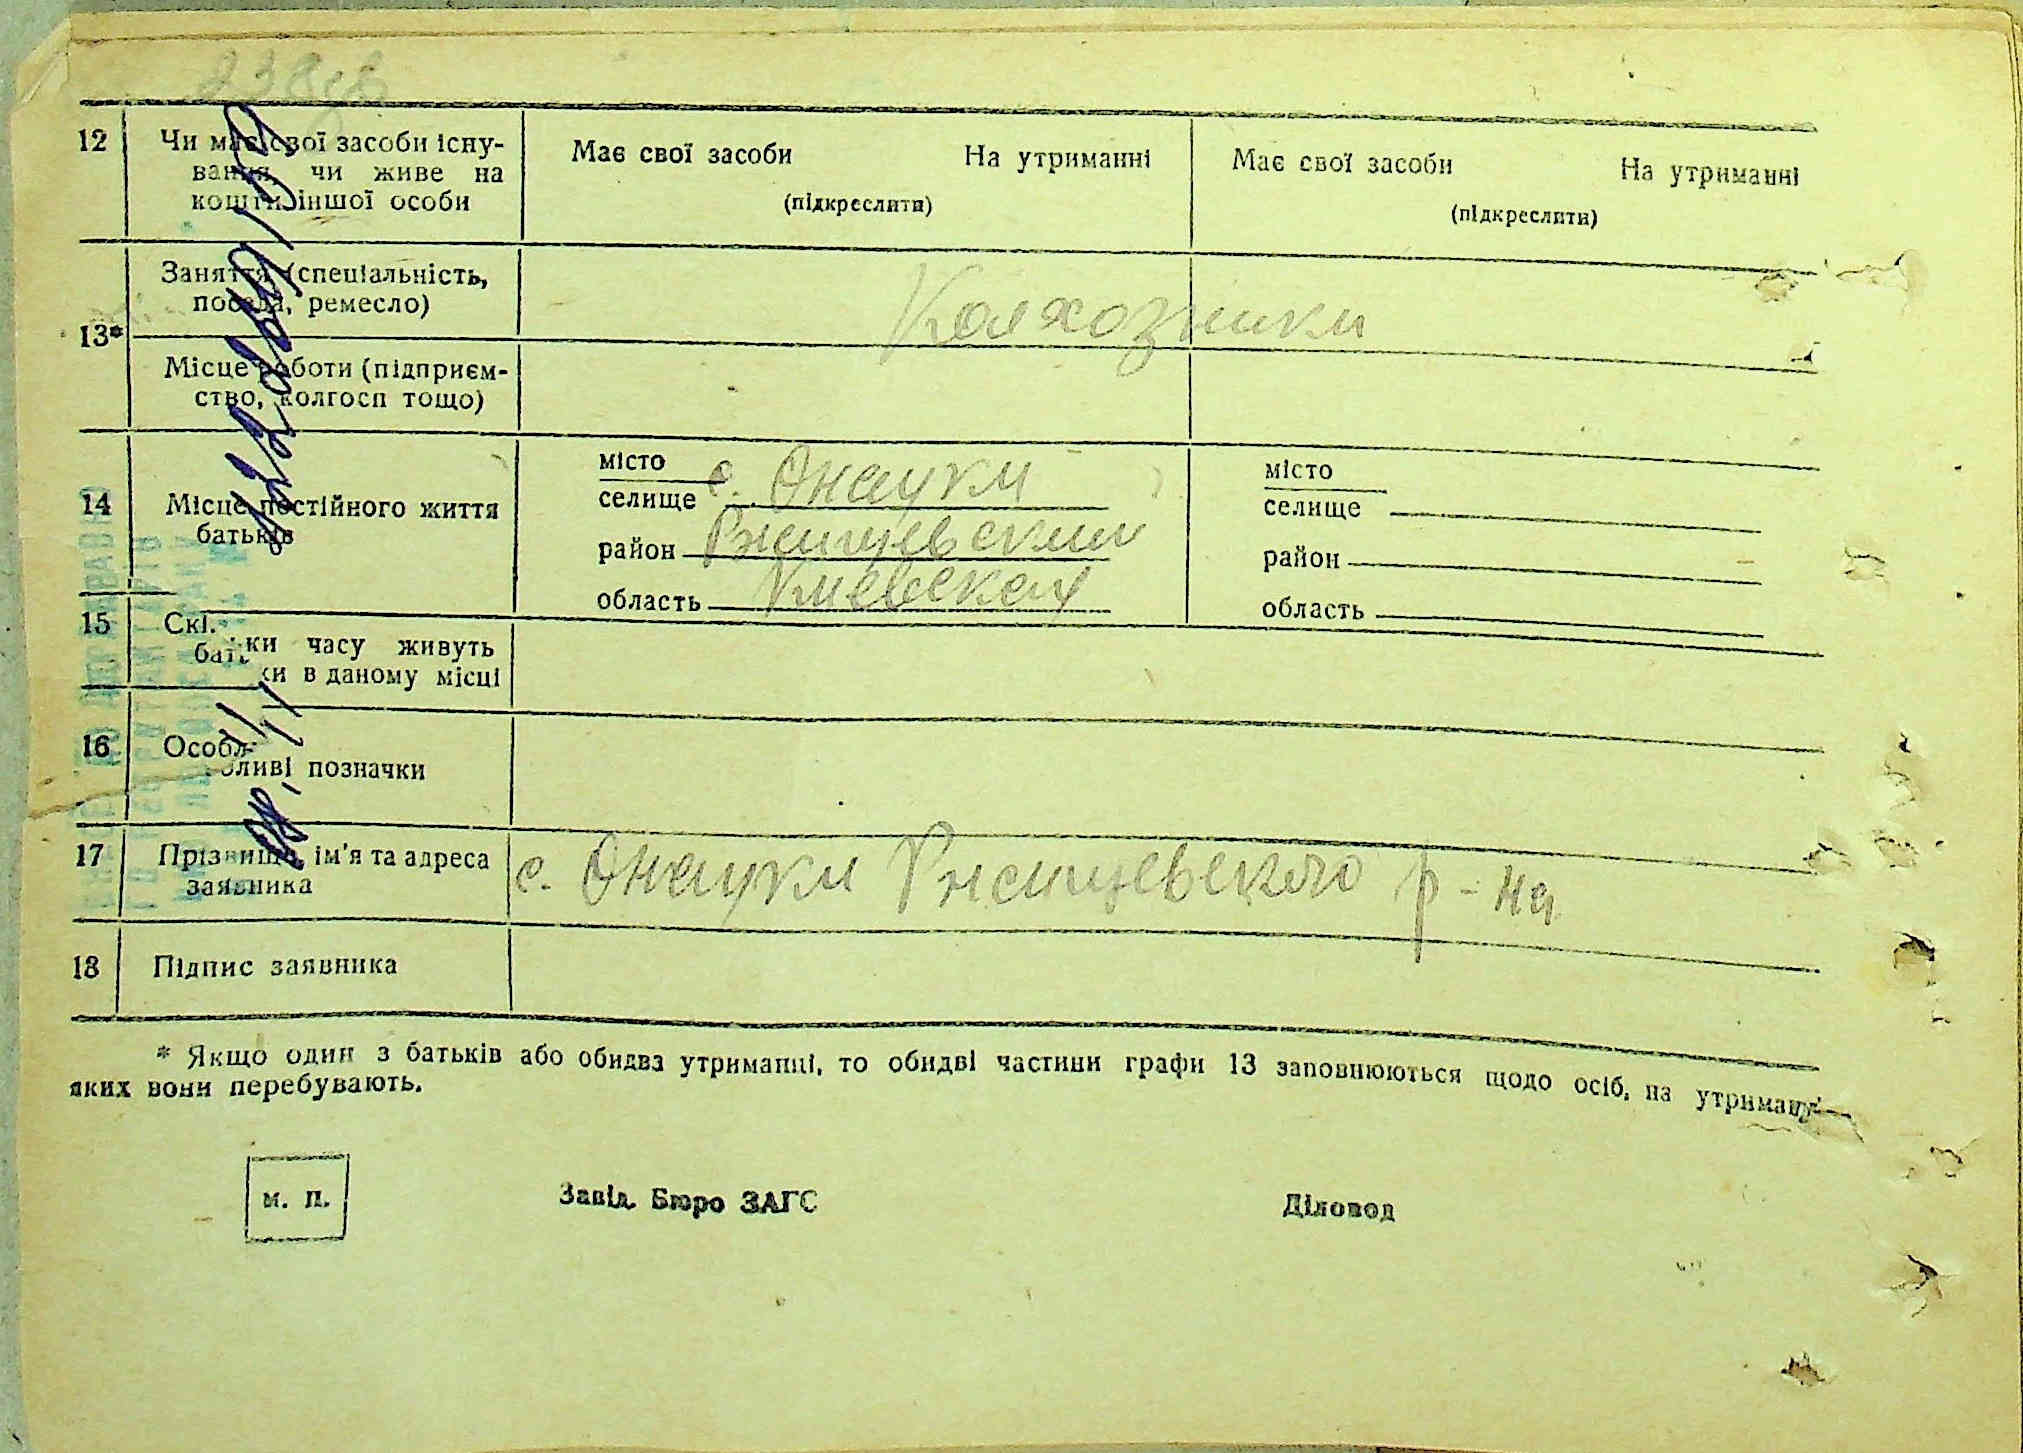 12
Чи має свої засоби існу-
вання, чи живе на
кошти іншої особи
Має свої засоби На утриманні
(підкреслити)
Має свої засоби На утриманні
(підкреслити)
13*
Заняття (спеціальність,
посада, ремесло)
Колхозники
Місце роботи (підприєм-
ство, колгосп тощо)
14
Місце постійного життя
батьків
місто
селище с. Онацки
район Ржищевский
область Киевская
місто
селище
район
область
15
Скі.
ки часу живуть
бать
ки в даному місці
16
Особл
ливі позначки
17
Прізвище, ім'я та адреса
заявника
с. Онацки Ржищевского р-на
18
Підпис заявника
* Якщо один з батьків або обидва утриманці, то обидві частини графи 13 заповнюються щодо осіб, на утриманні
яких вони перебувають.
м. п.
Завід. Бюро ЗАГС
Діловод